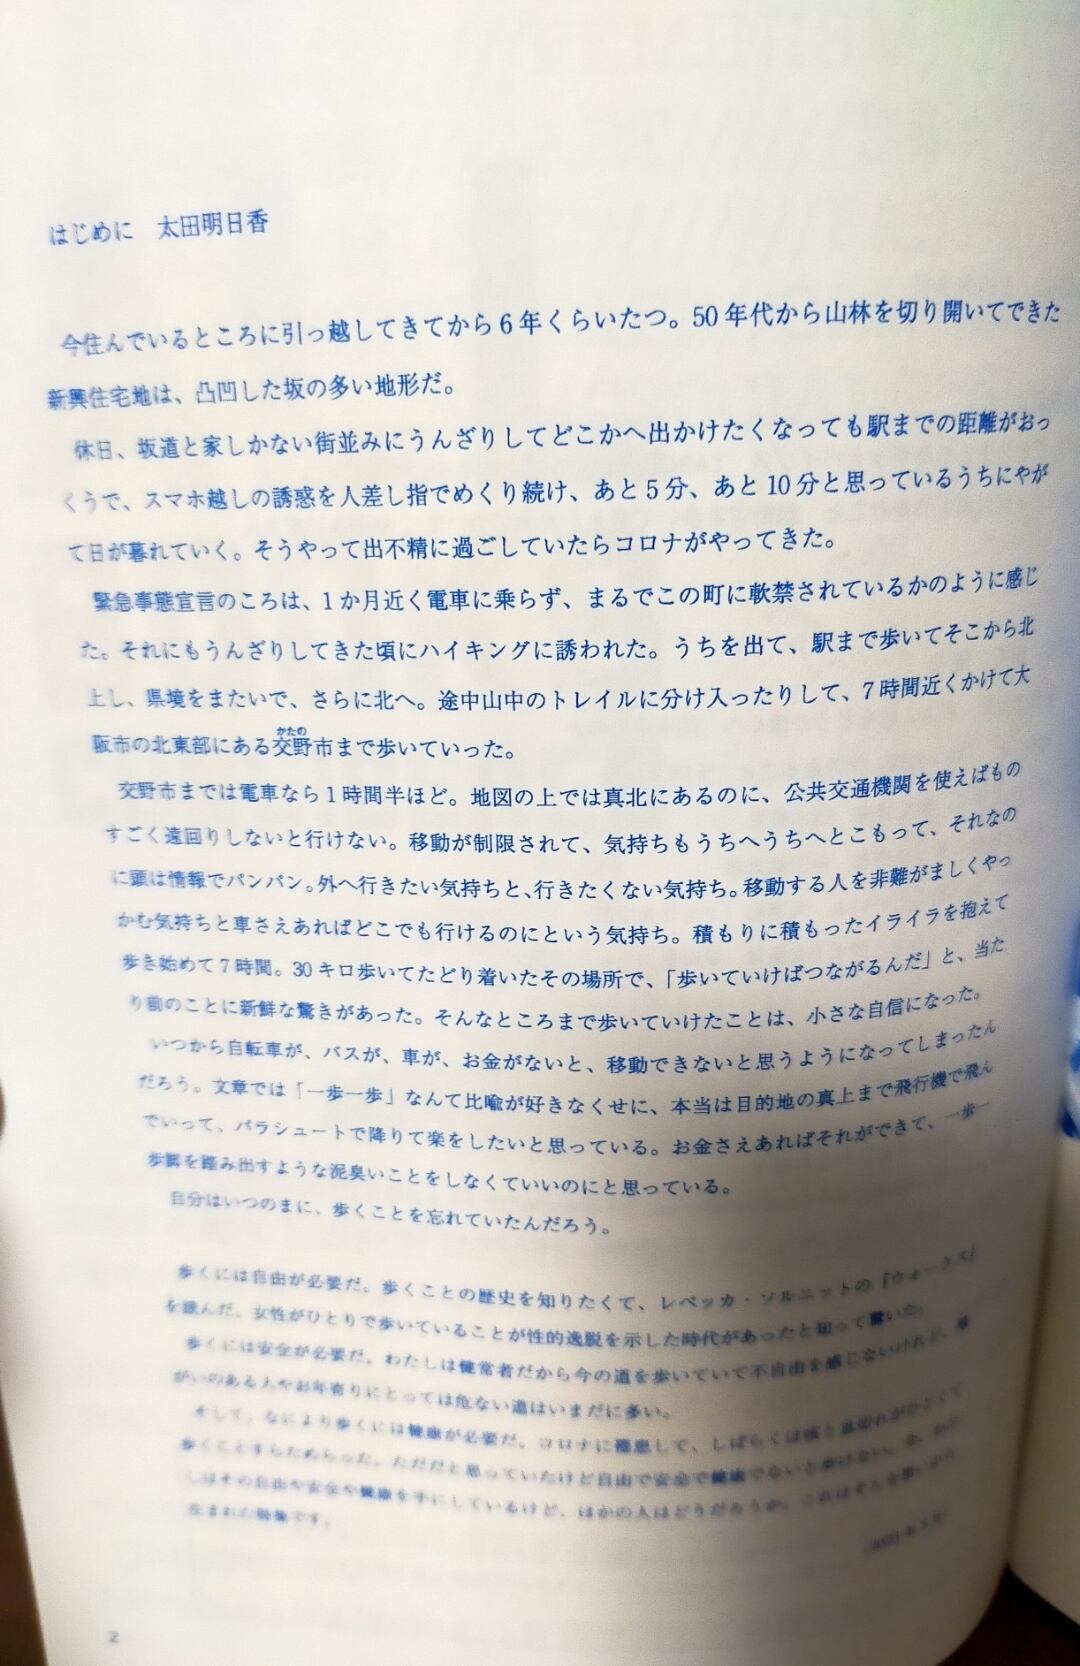 はじめに　太田明日香
今住んでいるところに引っ越してきてから6年くらいたつ。50年代から山林を切り開いてできた
新興住宅地は、凸凹した坂の多い地形だ。
休日、坂道と家しかない街並みにうんざりしてどこかへ出かけたくなっても駅までの距離がおっ
くうで、スマホ越しの誘惑を人差し指でめくり続け、あと5分、あと10分と思っているうちにやが
て日が暮れていく。そうやって出不精に過ごしていたらコロナがやってきた。
緊急事態宣言のころは、1か月近く電車に乗らず、まるでこの町に軟禁されているかのように感じ
た。それにもうんざりしてきた頃にハイキングに誘われた。うちを出て、駅まで歩いてそこから北
上し、県境をまたいで、さらに北へ。途中山中のトレイルに分け入ったりして、7時間近くかけて大
阪市の北東部にある交野市まで歩いていった。
かたの
交野市までは電車なら1時間半ほど。地図の上では真北にあるのに、公共交通機関を使えばもの
すごく遠回りしないと行けない。移動が制限されて、気持ちもうちへうちへとこもって、それなの
に頭は情報でパンパン。外へ行きたい気持ちと、行きたくない気持ち。移動する人を非難がましくやっ
かむ気持ちと車さえあればどこでも行けるのにという気持ち。積もりに積もったイライラを抱えて
歩き始めて7時間。30キロ歩いてたどり着いたその場所で、「歩いていけばつながるんだ」と、当た
り前のことに新鮮な驚きがあった。そんなところまで歩いていけたことは、小さな自信になった。
いつから自転車が、バスが、車が、お金がないと、移動できないと思うようになってしまったん
だろう。文章では「一歩一歩」なんて比喩が好きなくせに、本当は目的地の真上まで飛行機で飛ん
でいって、パラシュートで降りて楽をしたいと思っている。お金さえあればそれができて、一歩一
歩脚を踏み出すような泥臭いことをしなくていいのにと思っている。
自分はいつのまに、歩くことを忘れていたんだろう。
歩くには自由が必要だ。歩くことの歴史を知りたくて、レベッカ・ソルニットの『ウォークス』
を読んだ。女性がひとりで歩いていることが性的逸脱を示した時代があったと知って驚いた。
歩くには安全が必要だ。わたしは健常者だから今の道を歩いていて不自由を感じないけれど、障
がいのある人やお年寄りにとっては危ない道はいまだに多い。
そして、なにより歩くには健康が必要だ。コロナに罹患して、しばらくは咳と息切れがひどくて
歩くことすらためらった。ただだと思っていたけど自由で安全で健康でないと歩けない。今、わた
しはその自由や安全や健康を手にしているけど、ほかの人はどうだろうか。これはそんな思いから
生まれた特集です。
2